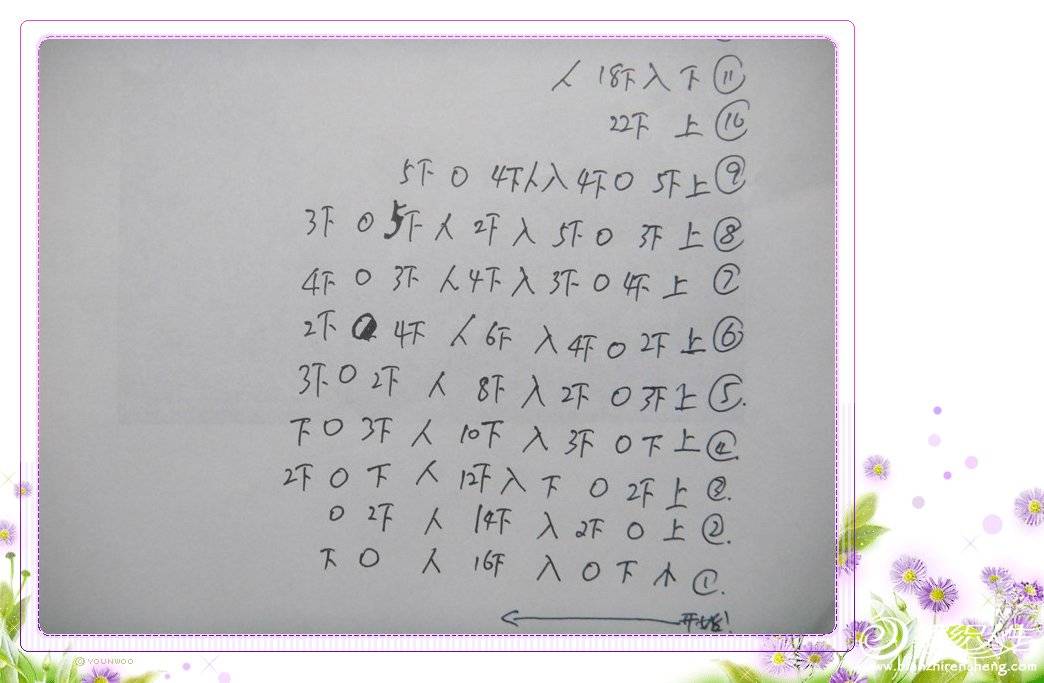 人 18下 入 下 ⑪
22下 上 ⑩
5下 0 4下 人 入 4下 0 5下 上 ⑨
3下 0 5下 人 2下 入 5下 0 3下 上 ⑧
4下 0 3下 人 4下 入 3下 0 4下 上 ⑦
2下 0 4下 人 6下 入 4下 0 2下 上 ⑥
3下 0 2下 人 8下 入 2下 0 3下 上 ⑤.
下 0 3下 人 10下 入 3下 0 下 上 ④.
2下 0 下 人 12下 入 下 0 2下 上 ③.
0 2下 人 14下 入 2下 0 上 ②.
下 0 人 16下 入 0 下 ①.
开始!
©YOUNWOO
www.bianzhirensheng.com